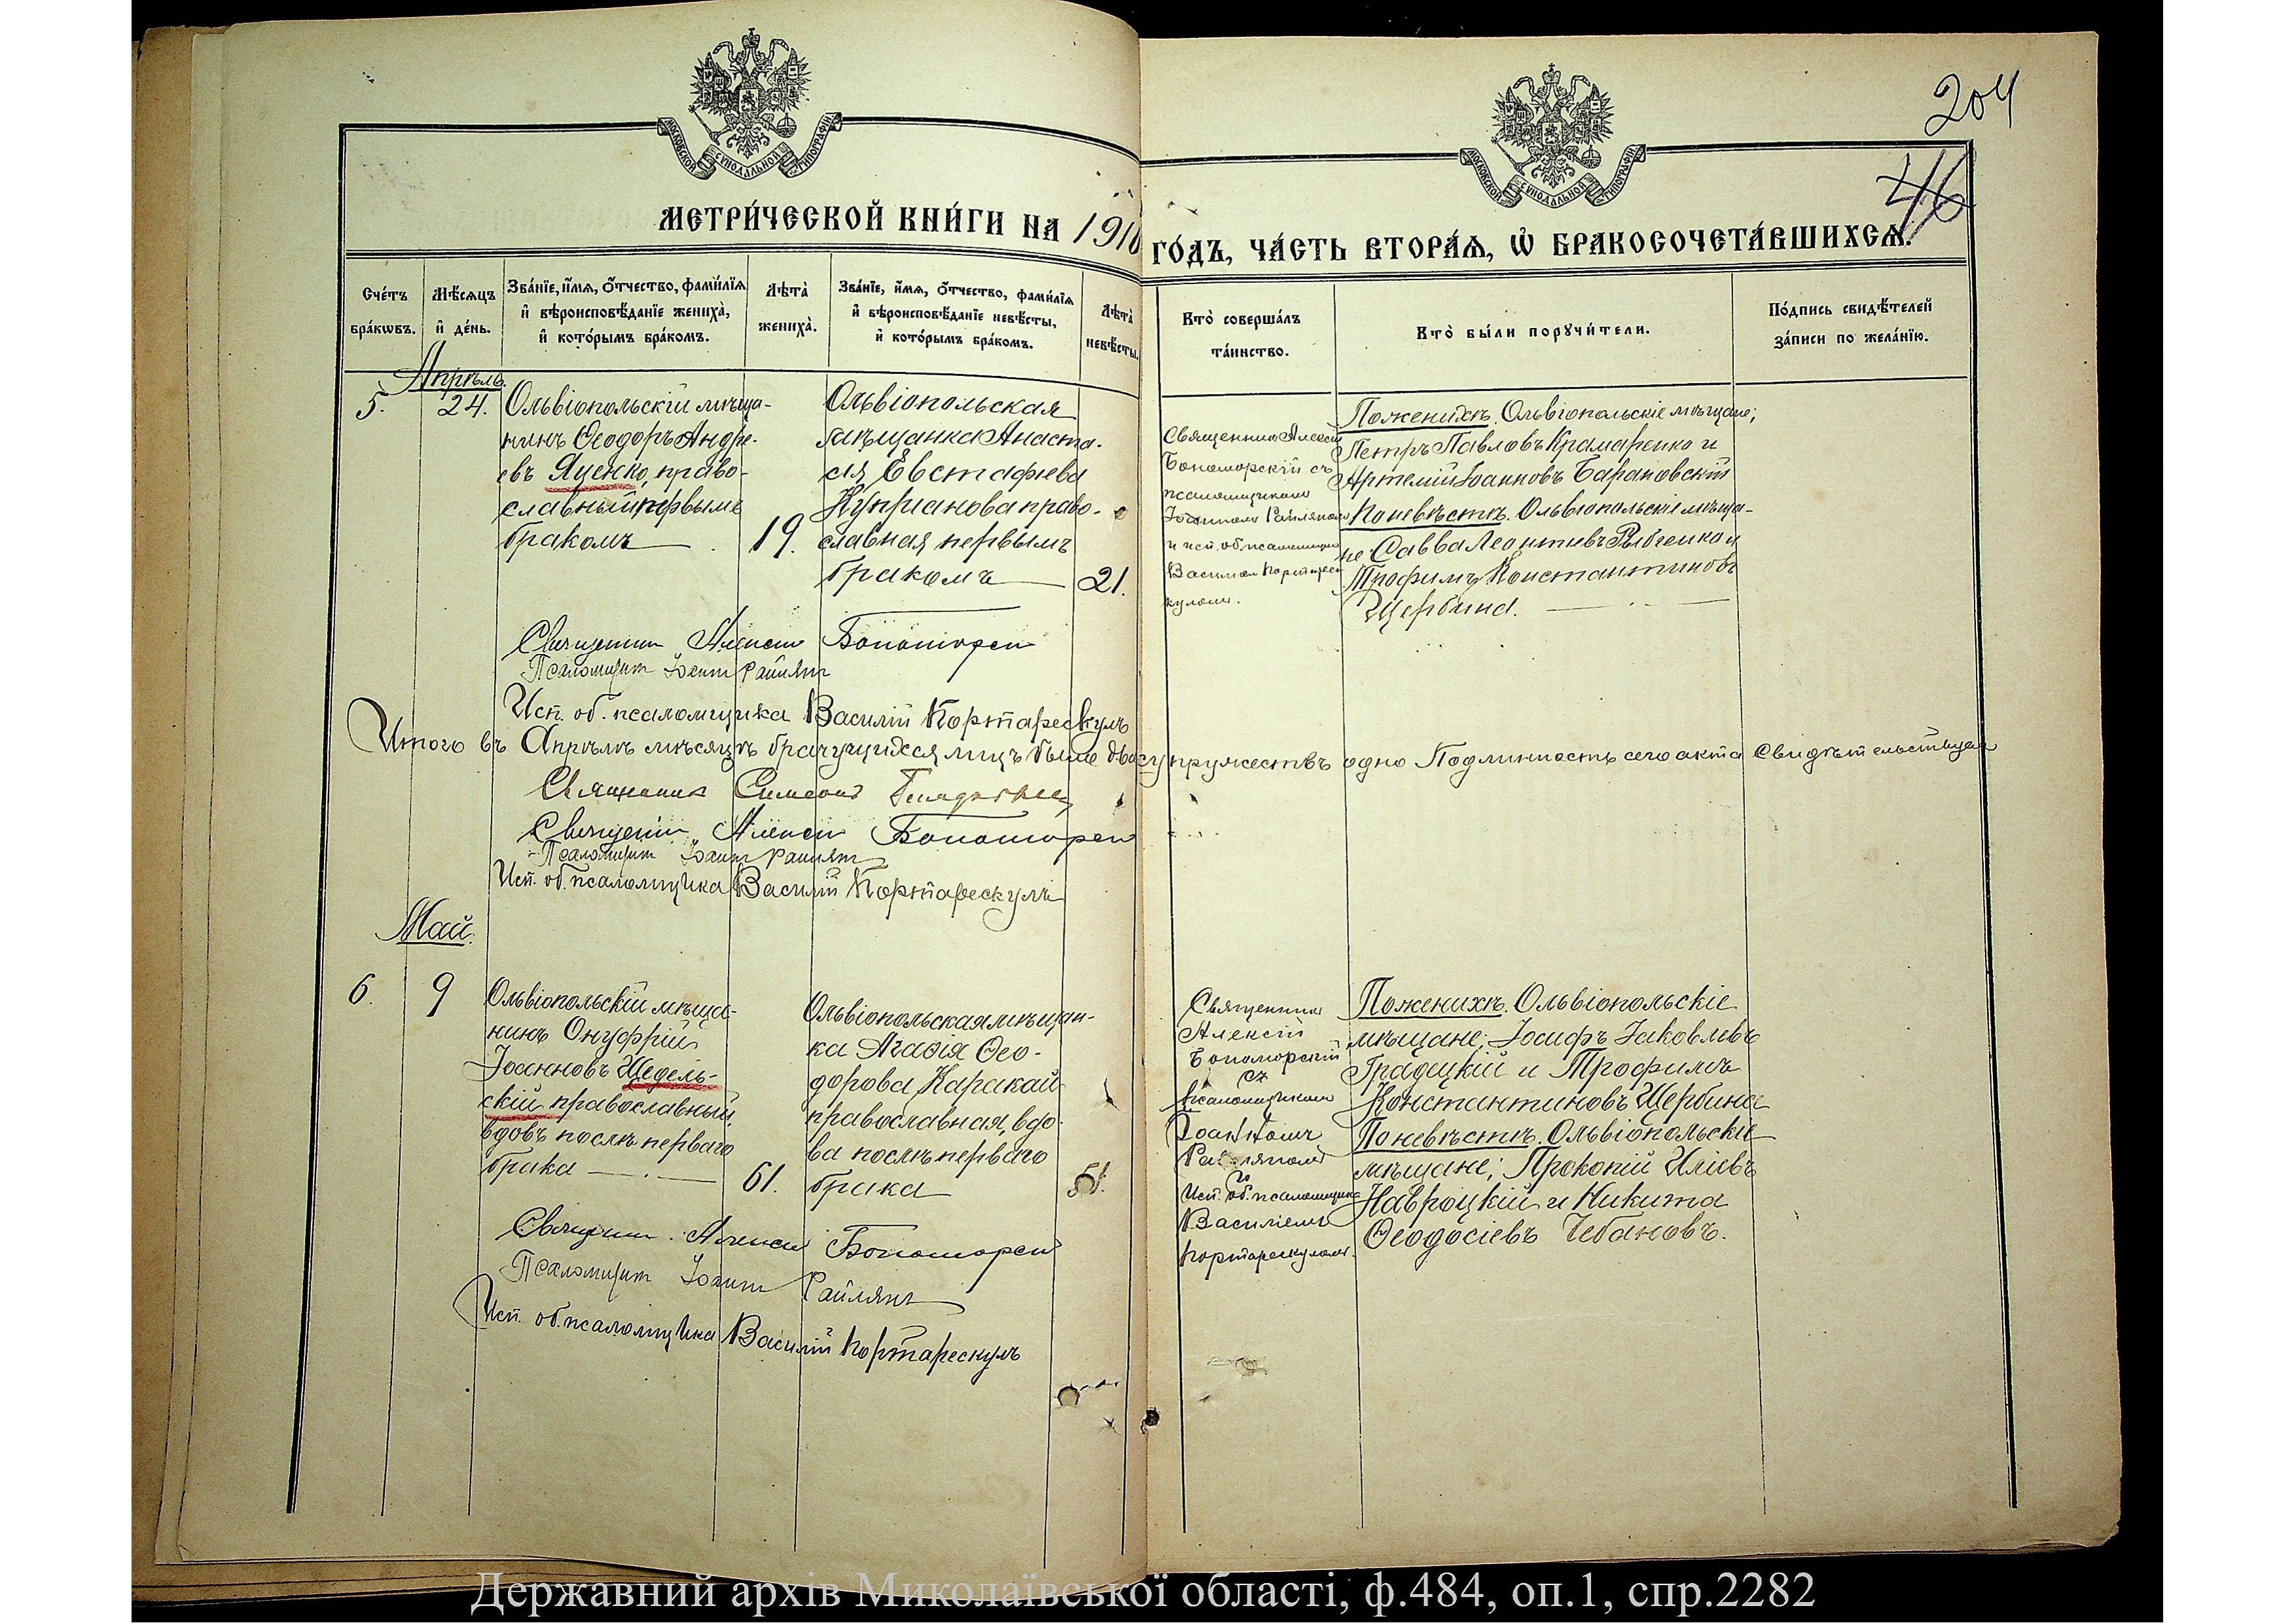 204
46
МОСКОВСКОЙ СУНОДАЛЬНОЙ ТИПОГРАФІИ
МОСКОВСКОЙ СУНОДАЛЬНОЙ ТИПОГРАФІИ
МЕТРИ́ЧЕСКОЙ КНИ́ГИ НА 1910 ГО́ДЪ, ЧА́СТЬ ВТОРА́Ѧ, Ѡ БРАКОСОЧЕТА́ВШИХСѦ.
Сче́тъ бра́кѡвъ.
Мѣ́сѧцъ и҆ де́нь.
Зва́нїе, и҆́мѧ, ѻ҆́тчество, фами́лїѧ
и҆ вѣроисповѣ́данїе жениха̀,
и҆ кото́рымъ бра́комъ.
Лѣта̀ жениха̀.
Зва́нїе, и҆́мѧ, ѻ҆́тчество, фами́лїѧ
и҆ вѣроисповѣ́данїе невѣ́сты,
и҆ кото́рымъ бра́комъ.
Лѣта̀ невѣ́сты.
Кто̀ соверша́лъ
та́инство.
Кто̀ бы́ли порꙋчи́тели.
По́дпись свидѣ́телей
за́писи по жела́нїю.
Апрѣль.
5.
24.
Ольвіопольскій мѣща-
нинъ Ѳеодоръ Андре-
евъ Яценко, право-
славный первымъ
бракомъ
19.
Ольвіопольская
мѣщанка Анаста-
сія Евстафіева
Купріанова право-
славная первымъ
бракомъ
21.
Священникъ Алексій
Бономорскій съ
псаломщикомъ
Іоанномъ Райляномъ
и исп. об. псаломщика
Василіем Портарес
куломъ.
По женихѣ. Ольвіопольскіе мѣщане;
Петръ Павловъ Крамаренко и
Артемій Іоанновъ Барановскій
По невѣстѣ. Ольвіопольскіе мѣща-
не Савва Леонтіевъ Рыбченко и
Трофимъ Константиновъ
Щербина.
Священник Алексій Бономорскій
Псаломщик Іоанн Райлян
Исп. об. псаломщика Василій Портарескулъ
Итого въ Апрѣлѣ мѣсяцѣ брачущихся лицъ было два супружествъ одно Подлинность сего акта Свидѣтельствуем
Священник Симеонъ
Священник Алексій Бономорскій
Псаломщик Іоанн Райлян
Исп. об. псаломщика Василій Портарескулъ
Май.
6.
9
Ольвіопольскій мѣща-
нинъ Онуфрій
Іоанновъ Щедель-
скій православный,
вдовъ послѣ перваго
брака
61.
Ольвіопольская мѣщан-
ка Агаѳія Ѳео-
дорова Каракай
православная, вдо-
ва послѣ перваго
брака
51.
Священник
Алексій
Бономорскій
съ
псаломщикомъ
Іоанномъ
Райляномъ
и
Исп. об. псаломщика
Василіемъ
Портарескуломъ.
По женихѣ. Ольвіопольскіе
мѣщане; Іосифъ Іаковлевъ
Градецкій и Трофимъ
Константиновъ Щербина
По невѣстѣ. Ольвіопольскіе
мѣщане; Прокопій Иліевъ
Навроцкій и Никита
Ѳеодосіевъ Чебановъ.
Священник Алексій Бономорскій
Псаломщик Іоанн Райлянъ
Исп. об. псаломщика Василій Портарескулъ
Державний архів Миколаївської області, ф.484, оп.1, спр.2282